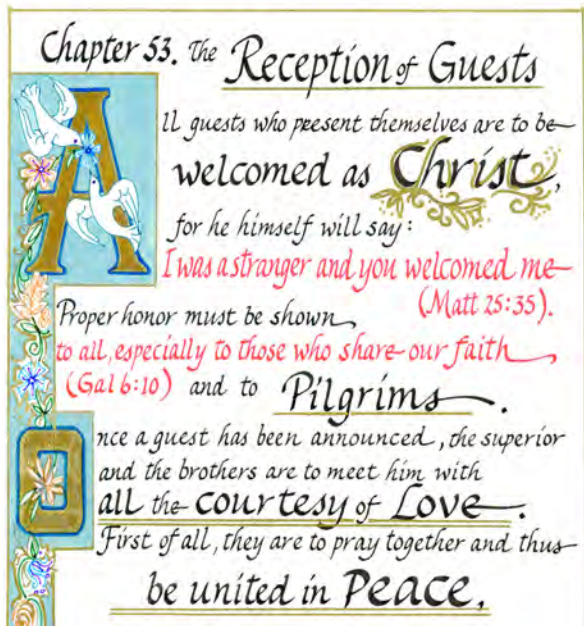 Chapter 53. The Reception of Guests
All guests who present themselves are to be
welcomed as Christ,
for he himself will say:
I was a stranger and you welcomed me
(Matt 25:35).
Proper honor must be shown
to all, especially to those who share our faith
(Gal 6:10) and to Pilgrims.
Once a guest has been announced, the superior
and the brothers are to meet him with
all the courtesy of Love.
First of all, they are to pray together and thus
be united in Peace,